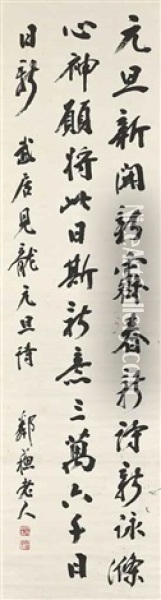 元旦新開新霽春新詩新詠滌
心神願將此日斯新意三萬六千日
日新 武后見龍元旦詩 鄰蘇老人